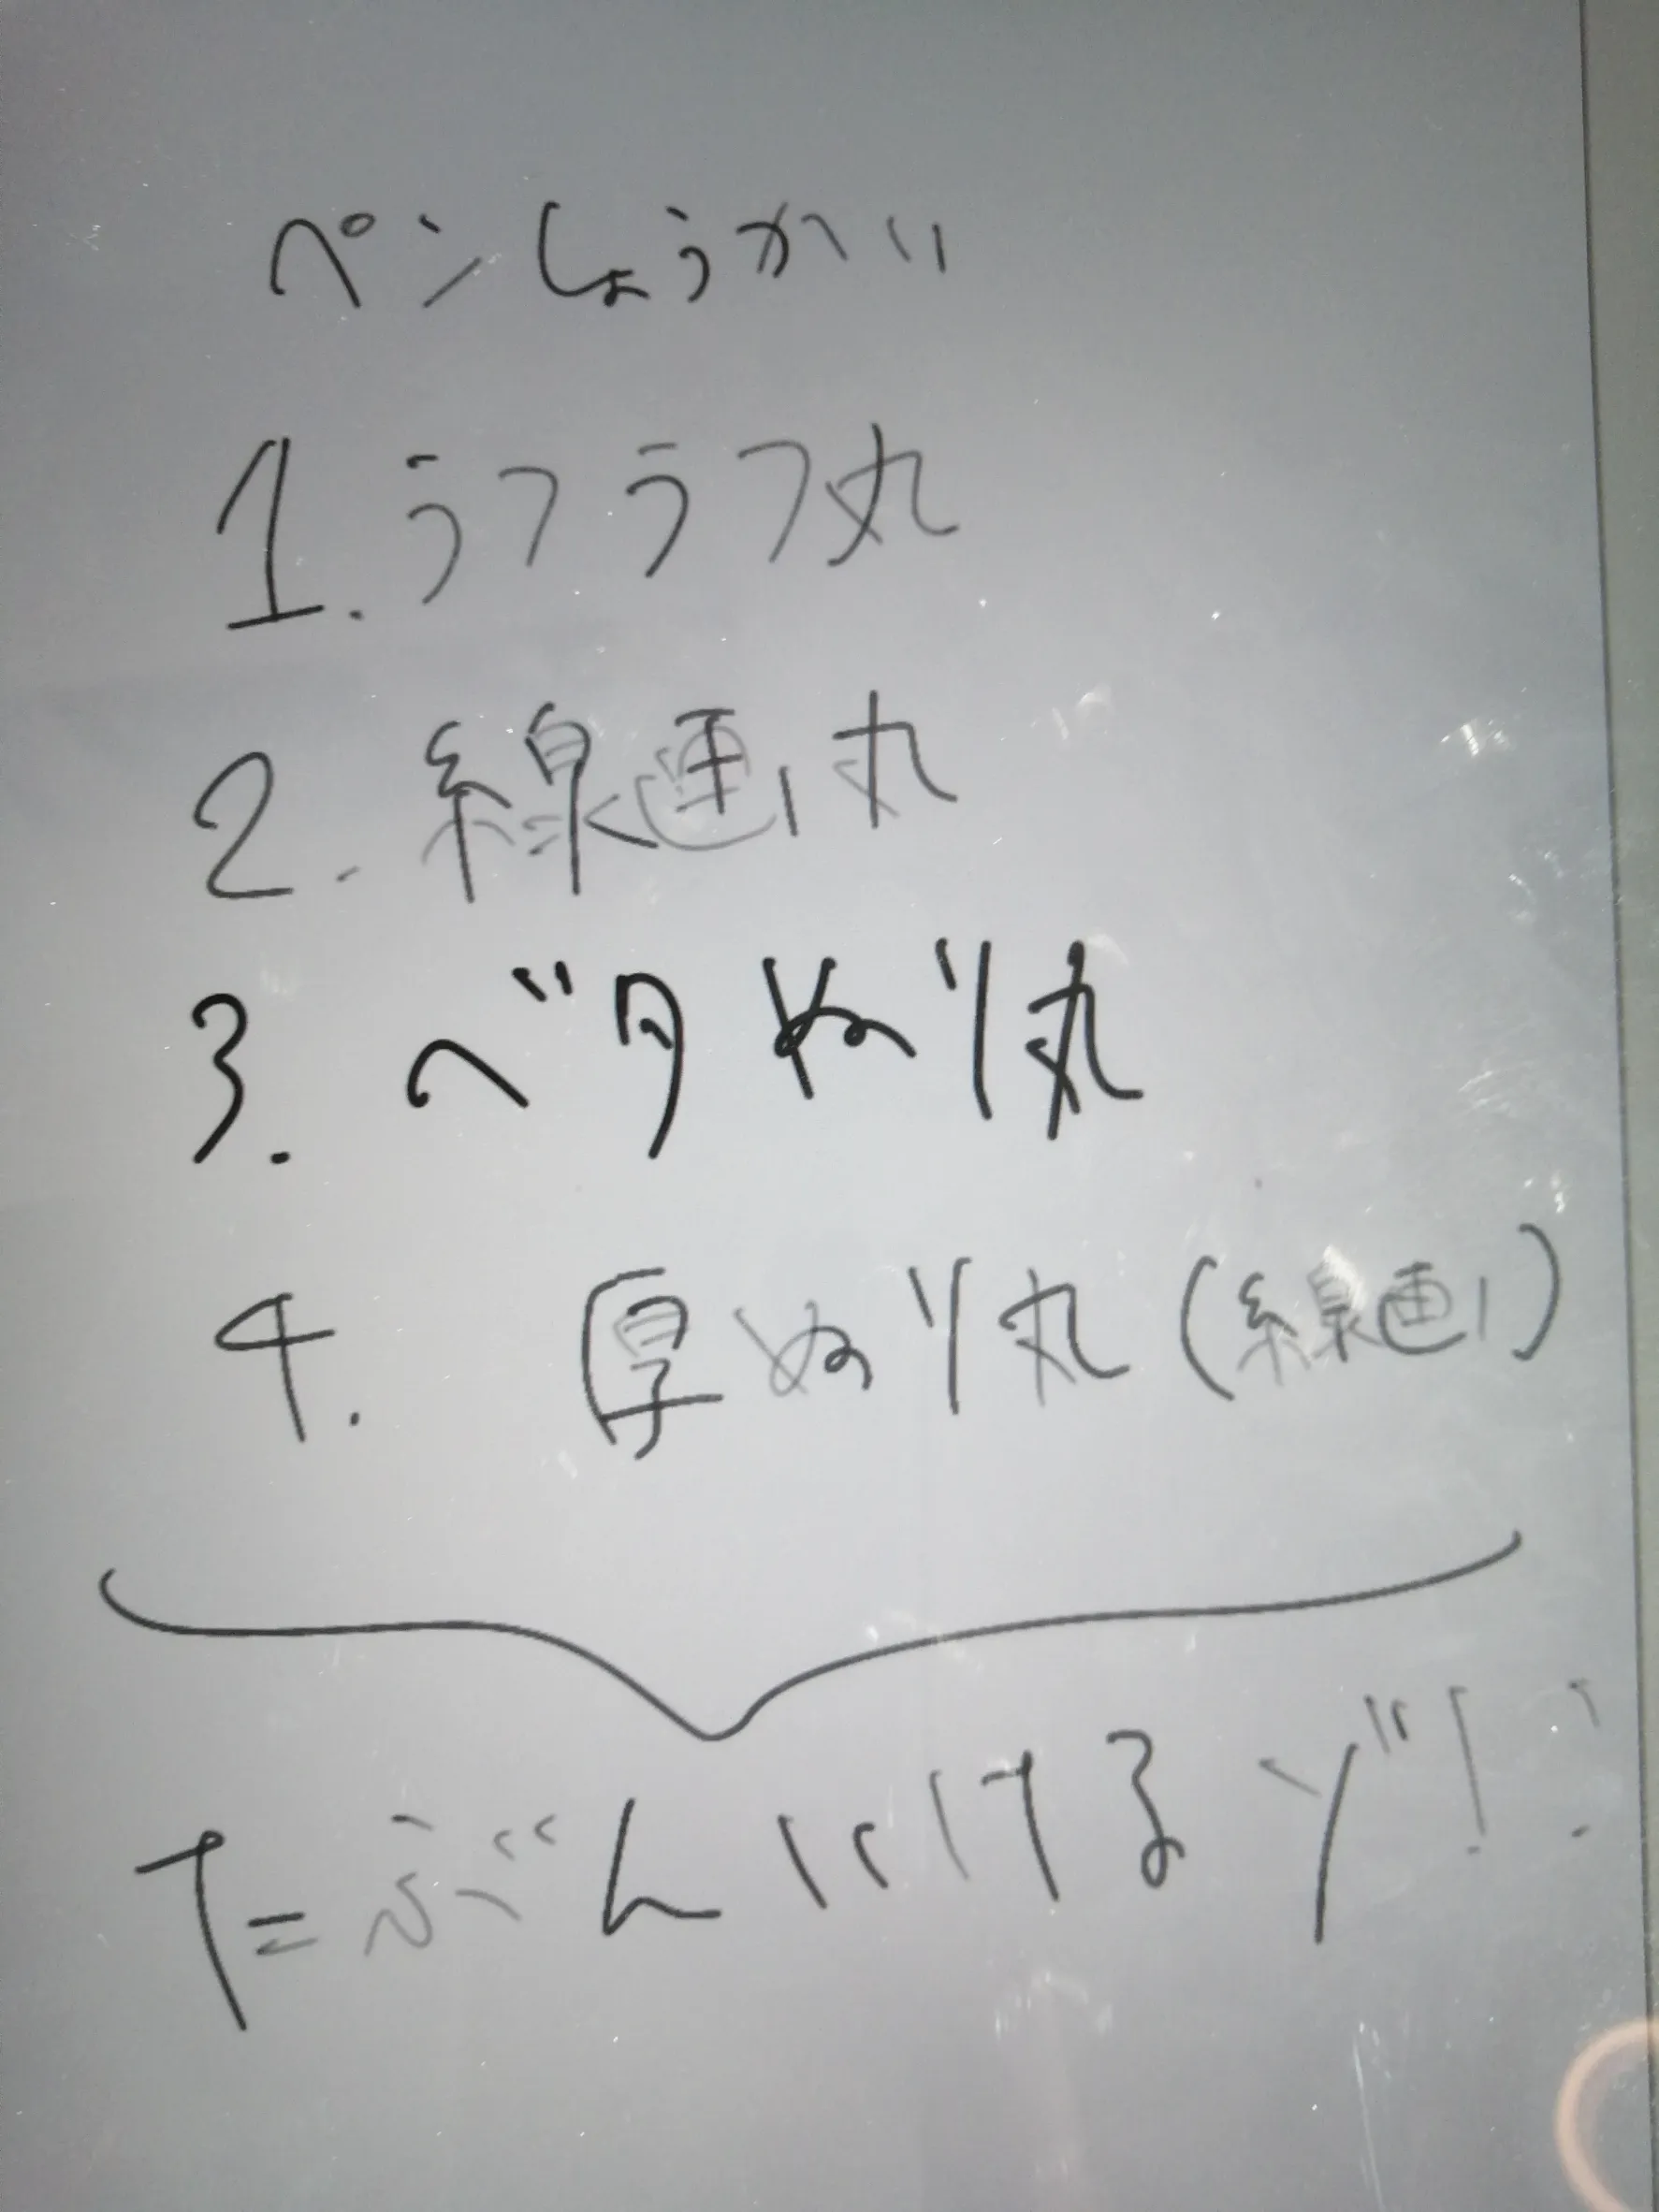 ペンしょうかい
1. うフうフ丸
2. 線画1丸
3. ベタぬり丸
4. 厚ぬり丸(線画1)
たぶんいけるゾ!!